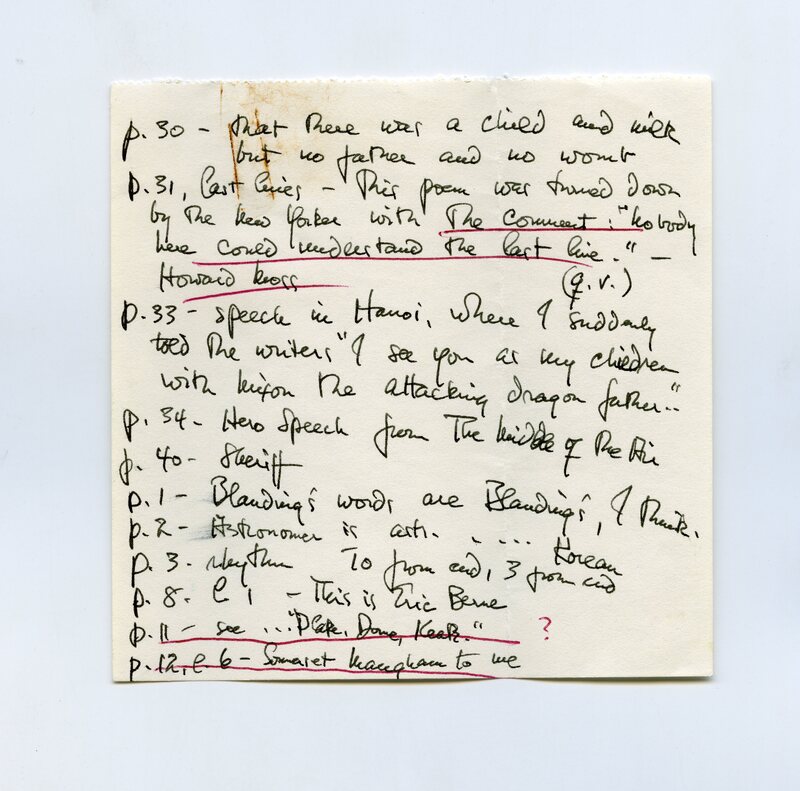 p. 30 - that there was a child and milk
but no father and no womb
p. 31, last lines - This poem was turned down
by the New Yorker with The comment: "nobody
here could understand the last line." -
Howard Moss (q.v.)
p. 33 - speech in Hanoi, where I suddenly
told The writers "I see you as my children
with Nixon the attacking dragon father.."
p. 34 - Hero speech from The Middle of The Air
p. 40 - Sheriff
p. 1 - Blanding's words are Blanding's, I think.
p. 2 - Astronomer is astr. . . . . .
p. 3 - rhythm To from end, 3 from end Korean
p. 8. l 1 - This is Eric Berne
p. 11 - see ... Donne, Keats." ?
p. 12, l. 6 - Somerset Maugham to me